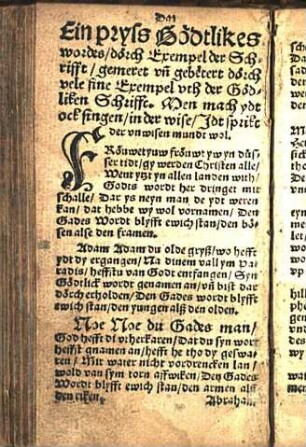 Dat
Ein pryss Gödtlikes
wordes / dörch Exempel der Sch-
rifft / gemeret vñ gebetert dörch
vele fine Exempel vth der Göd-
liken Schrifft. Men mach ydt
ock singen / in der wise / Idt sprikt
der vnwisen mundt wol.
FRöuwet yw fröuwt yw yn düs-
ser tidt / gy werden Christen alle /
Went ytzt yn allen landen with /
Godts wordt her dringet mit
schalle / Dar ys neyn man de ydt weren
kan / dat hebbe wy wol vornamen / Den
Gades Wordt blyfft ewich stan / den bö-
sen alse den framen.
Adam Adam du olde gryß / wo hefft
ydt dy ergangen / Na dinem vall ym Pa-
radis / hefftu van Godt entfangen / Syn
Gödtlick wordt genamen an / vñ bist dar
dörch erholden / Den Gades wordt blyfft
ewich stan / den yungen alß den olden.
Noe Noe du Gades man /
God hefft di vtherkaren / Dat du syn wort
hefft gnamen an / hefft he tho dy geswa-
ren / Mit water nicht vordrencken lan /
wold van sym torn affwiken / Den Gades
Wordt blyfft ewich stan / den armen alß
den riken.
Abraham